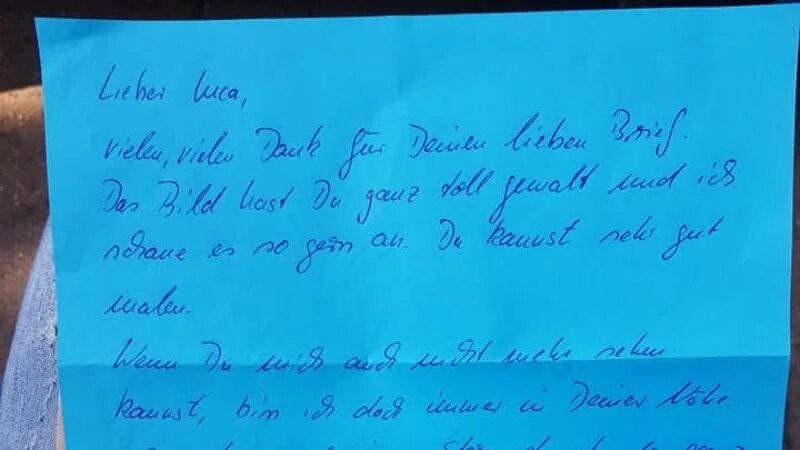 Lieber Luca,
vielen, vielen Dank für Deinen lieben Brief.
Das Bild hast Du ganz toll gemalt und ich
schaue es so gern an. Du kannst sehr gut
malen.
Wenn Du mich auch nicht mehr sehen
kannst, bin ich doch immer in Deiner Nähe